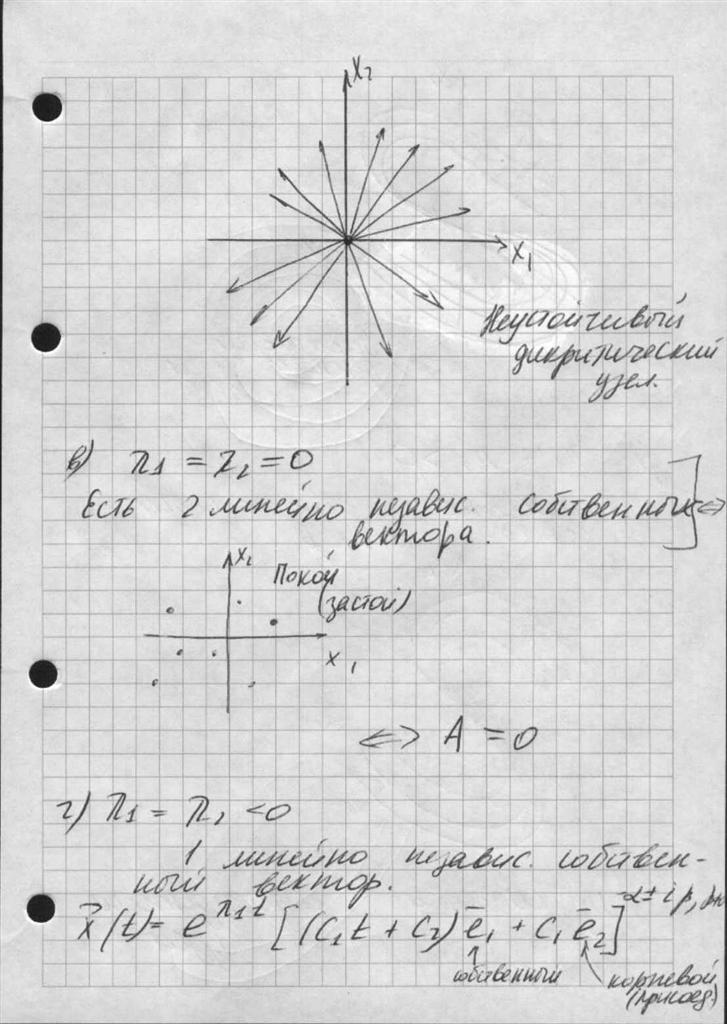 x₂
x₁
Неустойчивый
дикритический
узел.
в) λ₁ = λ₂ = 0
Есть 2 линейно независ. собственных ⇔
вектора.
x₂
Покой
(застой)
x₁
⇔ A = 0
г) λ₁ = λ₂ < 0
1 линейно независ. собствен-
ный вектор.
x⃗(t) = e^{λ₁t} [(C₁t + C₂) e̅₁ + C₁ e̅₂]
α ± iβ, β≠0
собственный
корневой
(присоед.)